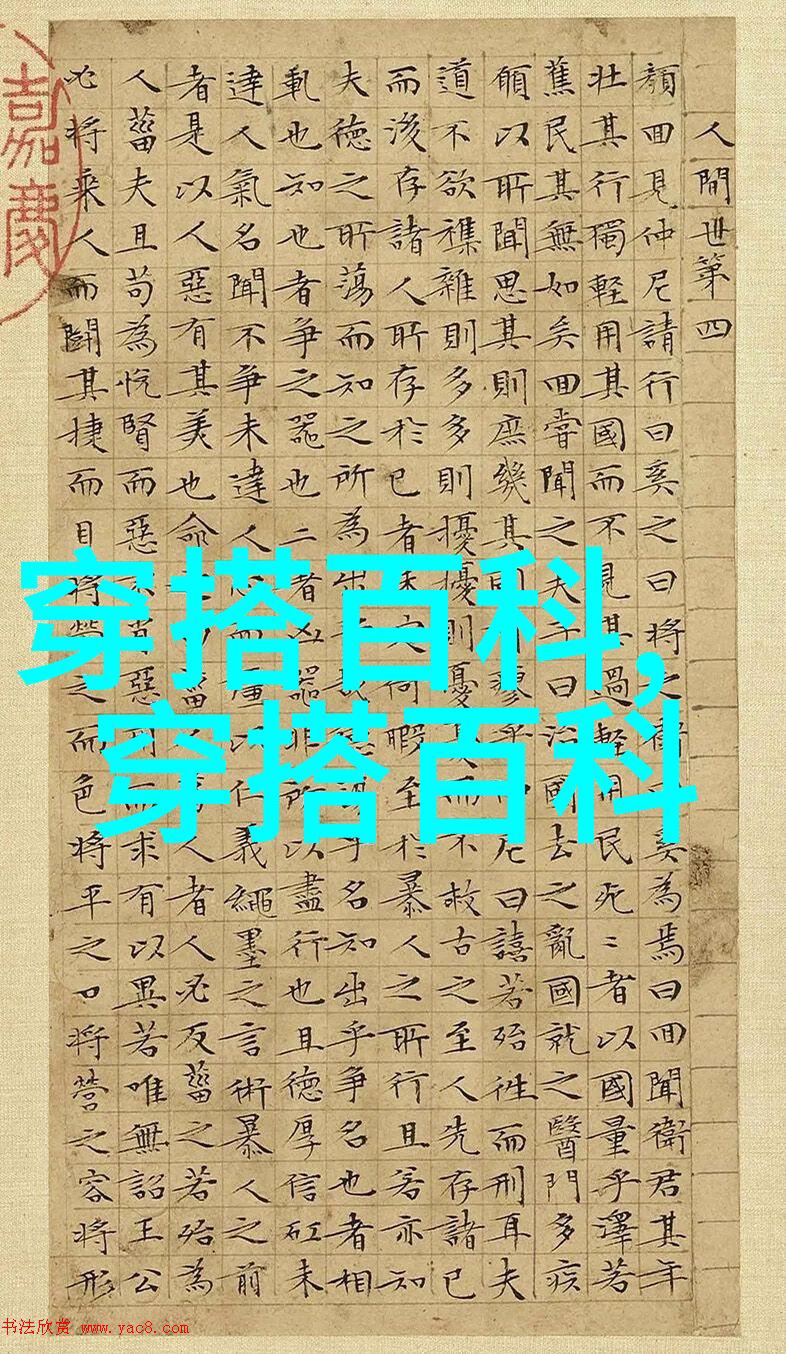 人間世第四
顔囬見仲尼請行曰奚之曰將之衛奚為焉曰囬聞衛君其年
壯其行獨輕用其國而不見其過輕用民死〻者以國量乎澤若
蕉民其無如矣囬嘗聞之夫子曰治國去之亂國就之醫門多疾
願以所聞思其則庶幾其瘳乎仲尼曰譆若殆往而刑耳夫
道不欲襍雜則多多則擾擾則憂而不救古之至人先存諸已
而後存諸人所存於已者未定何暇至於暴人之所行且若亦知
夫德之所蕩而知之所為出乎德乎名知出乎爭名也者相
軋也知也者爭之器也二者凶器非所以盡行也且德厚信矼未
達人氣名聞不爭未達人心而彊以仁義繩墨之言術暴人之前
者是以人惡有其美也命菑人者人必反菑之若殆為
人菑夫且苟為悅賢而惡不肖惡用而求有以異若唯無詔王公
必將乘人而鬭其捷而目將熒之而色將平之口將營之容將形
嘉慶
穿搭百科,
穿搭百科
书法欣赏 www.yac8.com